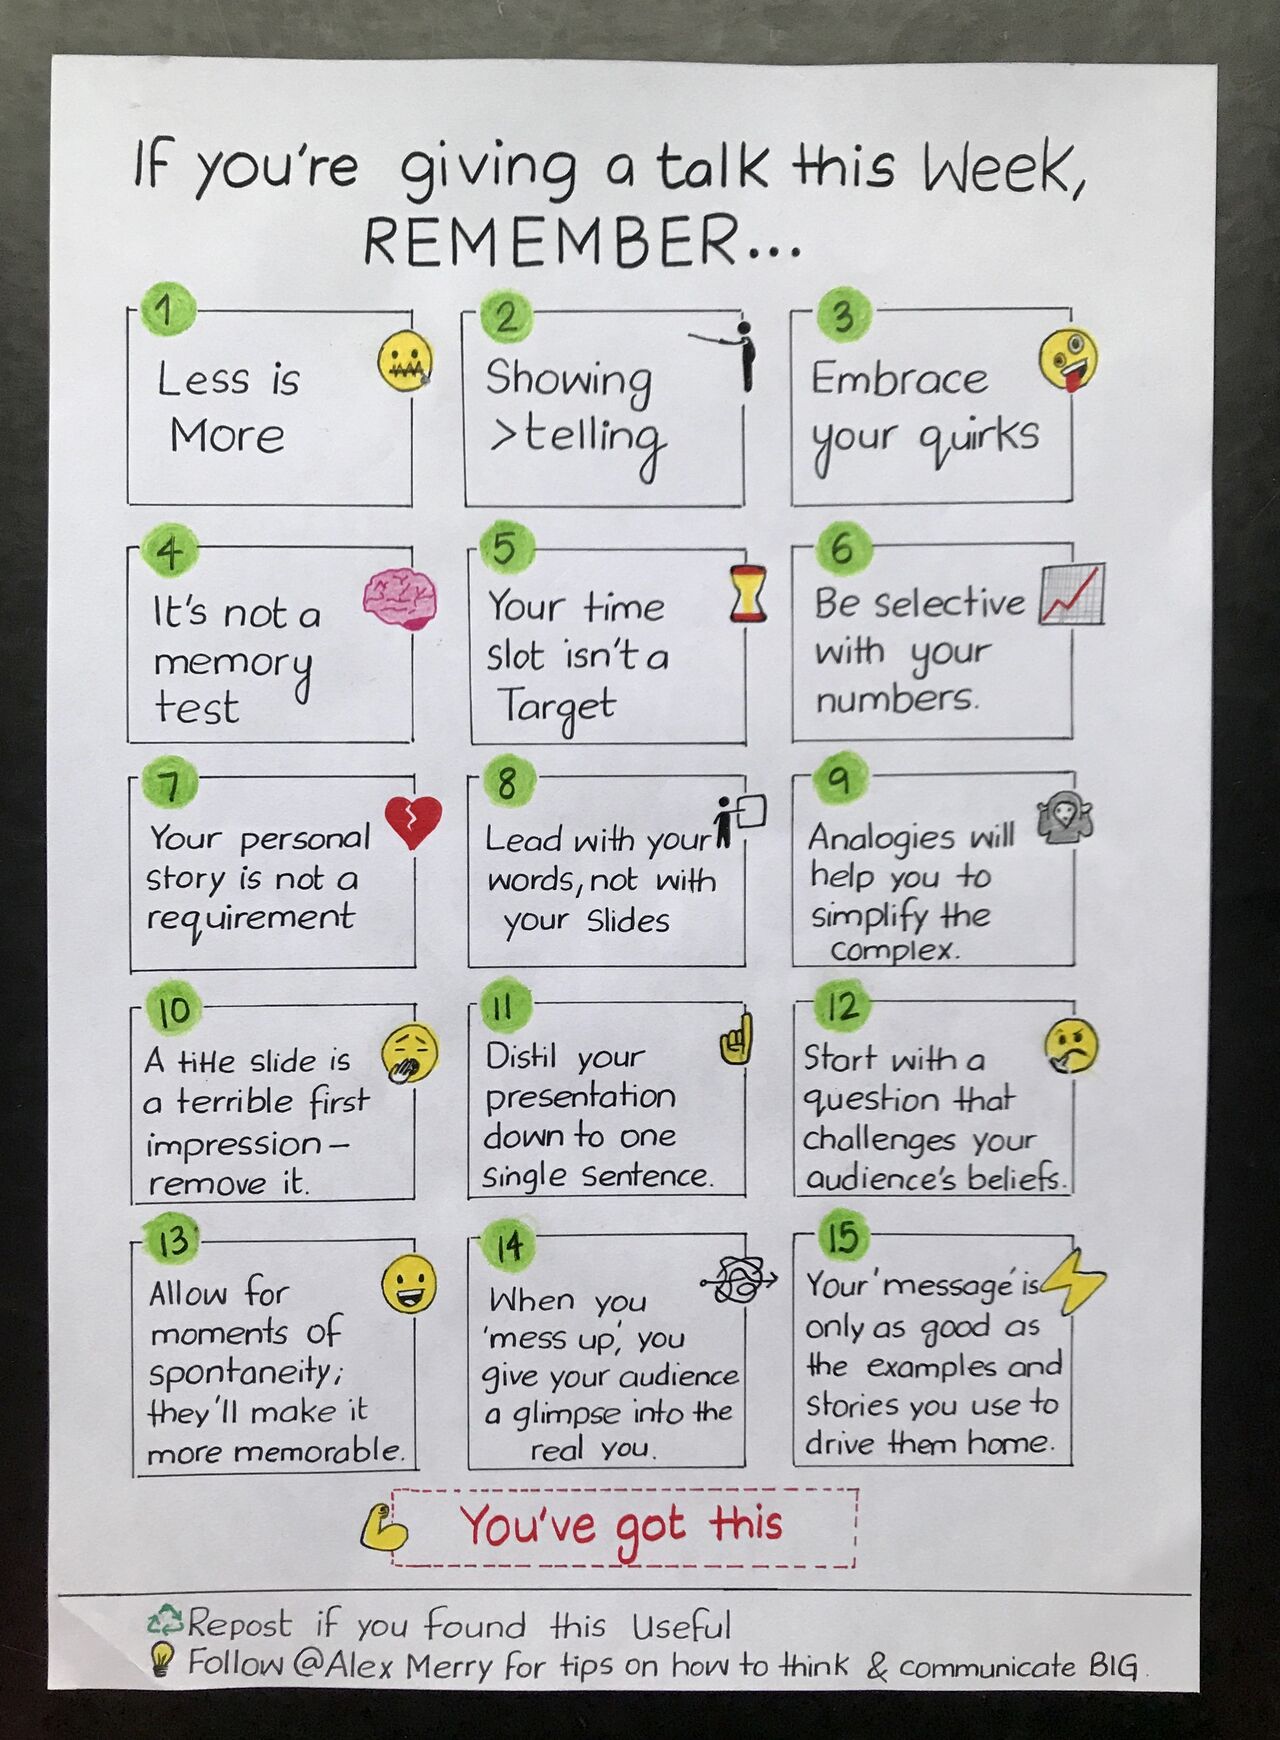 If you're giving a talk this Week,
REMEMBER...
1
Less is
More
2
Showing
>telling
3
Embrace
your quirks
4
It's not a
memory
test
5
Your time
slot isn't a
Target
6
Be selective
with your
numbers.
7
Your personal
story is not a
requirement
8
Lead with your
words, not with
your Slides
9
Analogies will
help you to
simplify the
complex.
10
A title slide is
a terrible first
impression—
remove it.
11
Distil your
presentation
down to one
Single Sentence.
12
Start with a
question that
challenges your
audience's beliefs.
13
Allow for
moments of
spontaneity;
they'll make it
more memorable.
14
When you
'mess up', you
give your audience
a glimpse into the
real you.
15
Your 'message' is
only as good as
the examples and
stories you use to
drive them home.
You've got this
Repost if you found this Useful
Follow @Alex Merry for tips on how to think & communicate BIG.